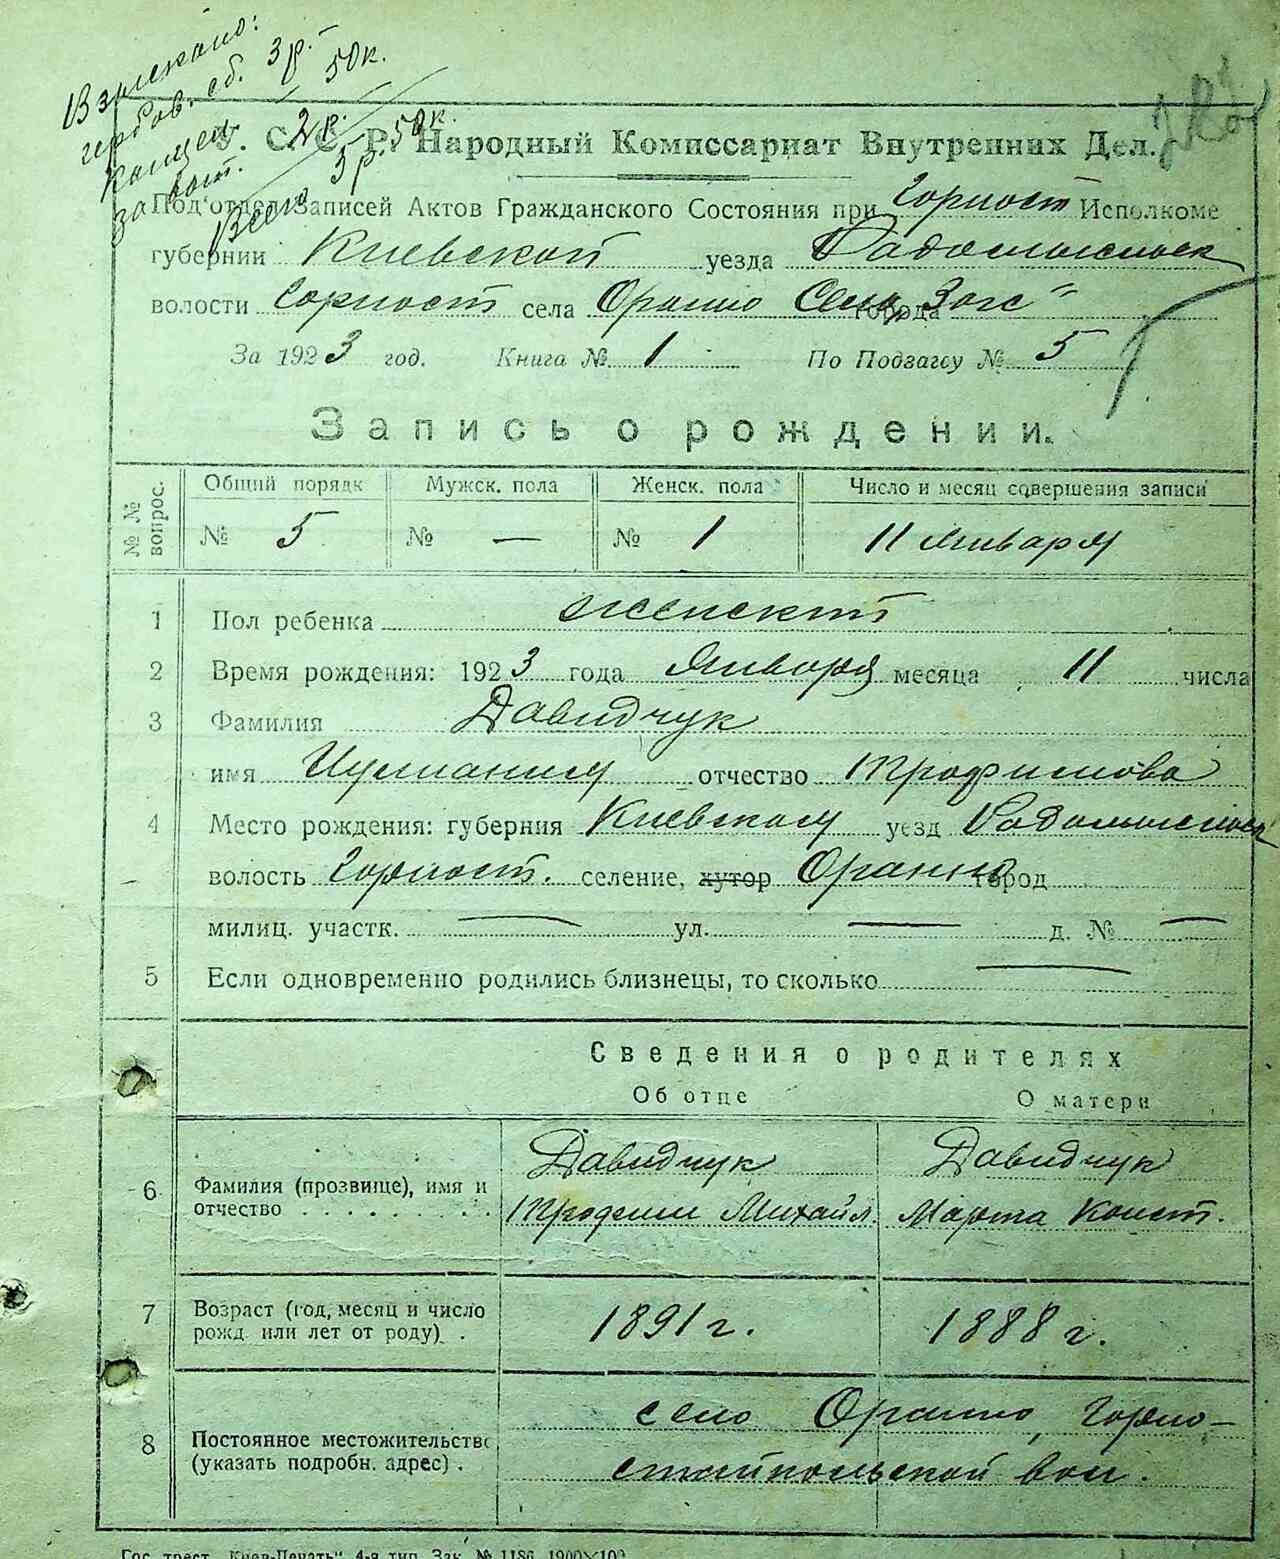 Взыскано:
гербов. сб. 3 р. -
Канцел. - 50 к.
за бланк. 2 р. -
Всего 5 р. 50 к.
У. С. С. Р. Народный Комиссариат Внутренних Дел.
Под'отдел Записей Актов Гражданского Состояния при Горност Исполкоме
губернии Киевской уезда Радомысльск
волости Горност села Оранно Сель Загс города
За 1923 год. Книга № 1 По Подзагсу № 5
Запись о рождении.
№ № вопрос. Общий порядк Мужск. пола Женск. пола Число и месяц совершения записи
№ 5 № — № 1 11 января
1 Пол ребенка женский
2 Время рождения: 1923 года Января месяца 11 числа
3 Фамилия Давидчук
имя отчество Трофимова
4 Место рождения: губерния Киевская уезд Радомысльск
волость Горност. селение, хутор Оранно город
милиц. участк. — ул. — д. № —
5 Если одновременно родились близнецы, то сколько —
Сведения о родителях
Об отце О матери
Давидчук Давидчук
6 Фамилия (прозвище), имя и
отчество Трофим Михайл. Марта Конст.
7 Возраст (год, месяц и число
рожд. или лет от роду) . 1891 г. 1888 г.
село Оранно, Горно-
8 Постоянное местожительство
(указать подробн. адрес) . стайпольской вол.
Гос. трест „Киев-Печать" 4-я тип. Зак. № 1186 1900×100